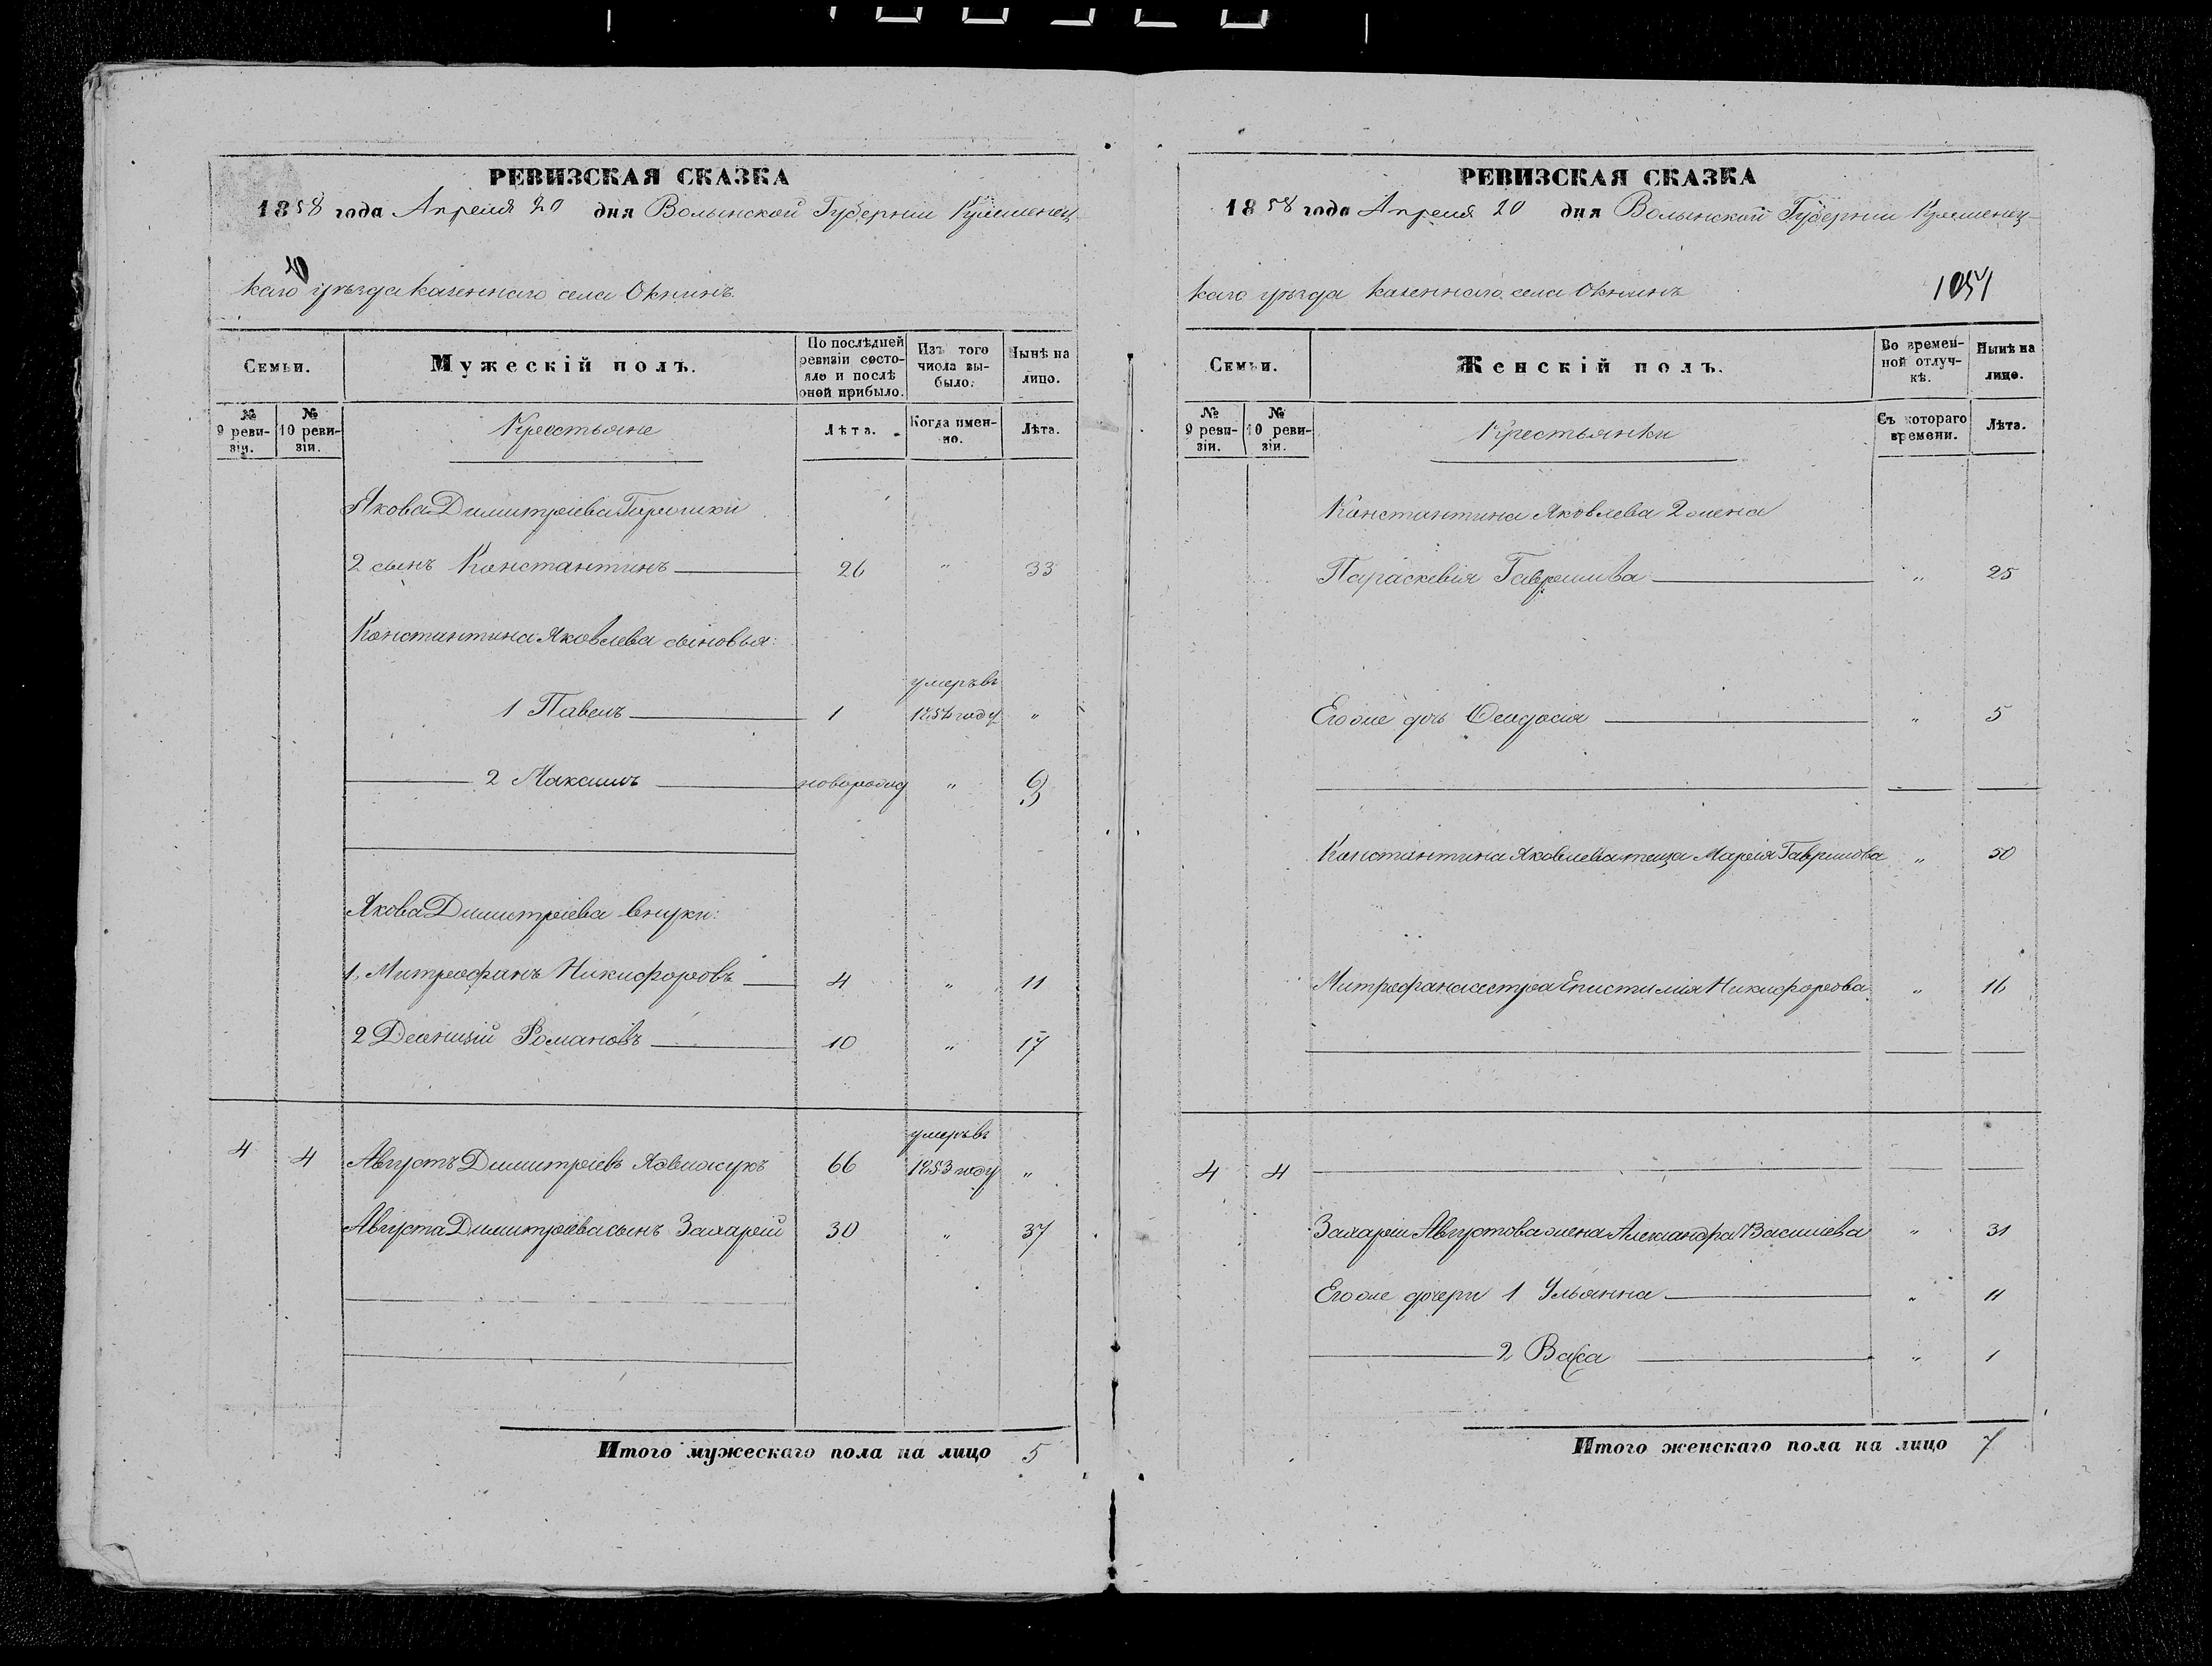 РЕВИЗСКАЯ СКАЗКА
1858 года Апреля 20 дня Волынской Губерніи Кременец-
каго уезда казеннаго села Окнинъ
Семьи.
Мужескій полъ.
По послѣдней ревизіи состояло и послѣ оной прибыло.
Изъ того числа выбыло.
Нынѣ на лицо.
№ 9 ревизіи.
№ 10 ревизіи.
Крестьяне
Лѣта.
Когда именно.
Лѣта.
Якова Димитріева
2 сынъ Константинъ 26 " 33
Константина Яковлева сыновья:
умеръ въ
1 Павелъ 1 1854 году "
2 Максимъ новорожд " 3
Якова Димитріева внуки:
1, Митрофанъ Никифоровъ 4 " 11
2 Деонизій Романовъ 10 " 17
умеръ въ
4 4 Августъ Димитріевъ 66 1853 году "
Августа Димитріева сынъ Захарій 30 " 37
Итого мужескаго пола на лицо 5
РЕВИЗСКАЯ СКАЗКА
1858 года Апреля 20 дня Волынской Губерніи Кременец-
каго уезда казеннаго села Окнинъ
1051
Семьи.
Женскій полъ.
Во временной отлучкѣ.
Нынѣ на лицо.
№ 9 ревизіи.
№ 10 ревизіи.
Крестьянки
Съ котораго времени.
Лѣта.
Константина Яковлева 2 жена
Параскевія Гаврилова " 25
Его же дочь Феодосія " 5
Константина Яковлева теща Марія Гаврилова " 50
Митрофана сестра Епистимія Никифорова " 16
4 4
Захарія Августова жена Александра Васильева " 31
Его же дочери 1 Ульянна " 11
2 Васса " 1
Итого женскаго пола на лицо 7